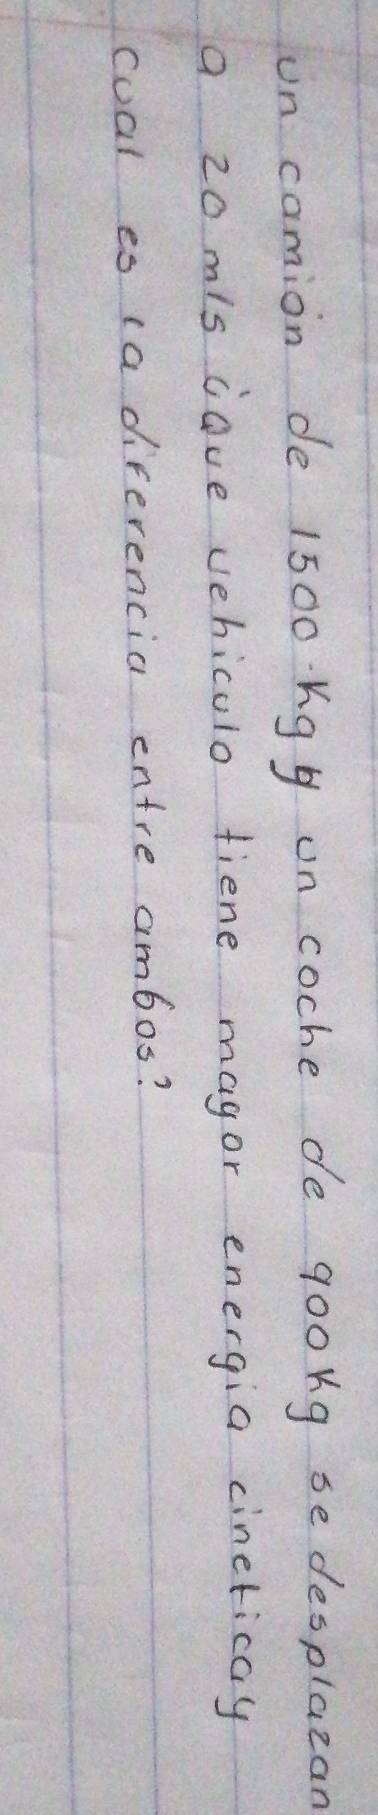 un camión de 1500 kg y un coche de 900kg se desplazan
a 20 m/s ¿Que vehiculo tiene mayor energia cinetica y
cual es la diferencia entre ambos?